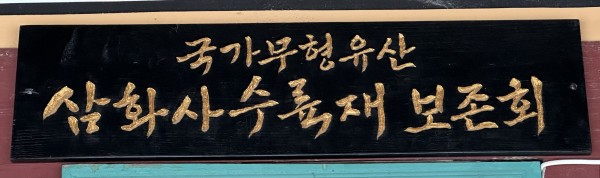 국가무형유산
삼화사수륙재 보존회